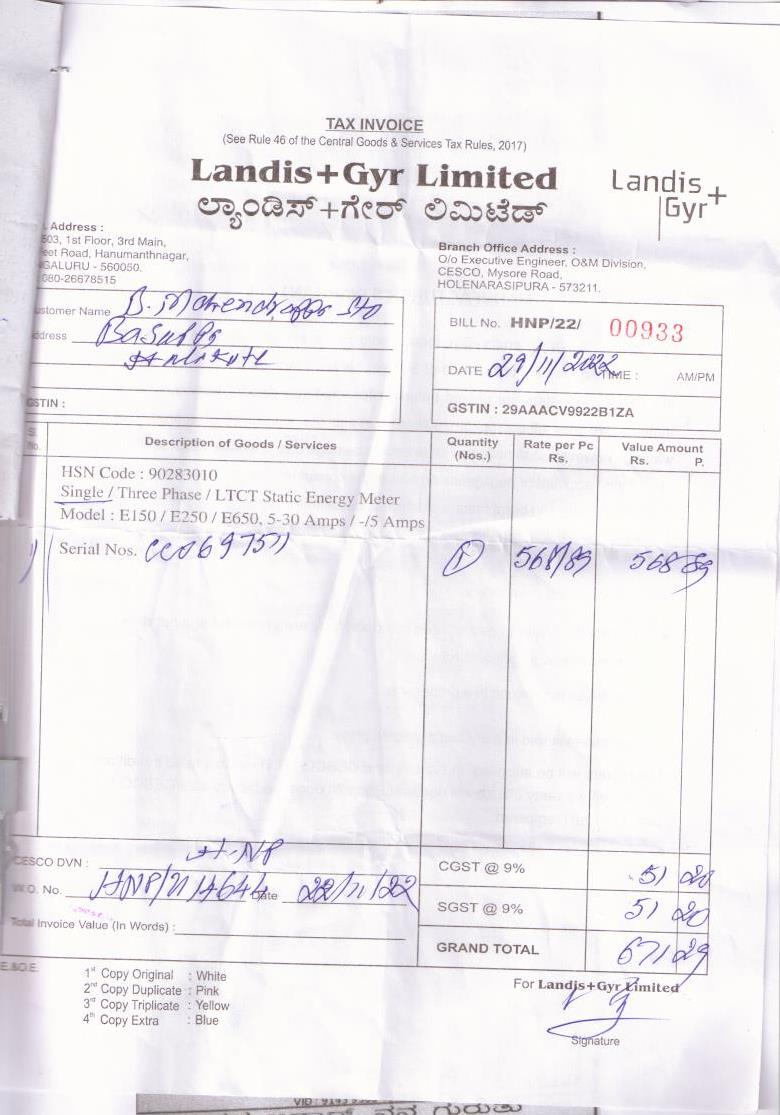 TAX INVOICE
(See Rule 46 of the Central Goods & Services Tax Rules, 2017)
Landis+Gyr Limited
ಲ್ಯಾಂಡಿಸ್+ಗೇರ್ ಲಿಮಿಟೆಡ್
Landis+
Gyr
Address :
503, 1st Floor, 3rd Main,
eet Road, Hanumanthnagar,
GALURU - 560050.
080-26678515
Branch Office Address :
O/o Executive Engineer, O&M Division,
CESCO, Mysore Road,
HOLENARASIPURA - 573211.
ustomer Name B. Mahendrappa S/o
ddress Basappa
BILL No. HNP/22/ 00933
DATE 29/11/2022 TIME : AM/PM
GSTIN :
GSTIN : 29AAACV9922B1ZA
Sl. No. Description of Goods / Services Quantity (Nos.) Rate per Pc Rs. Value Amount Rs. P.
HSN Code : 90283010
Single / Three Phase / LTCT Static Energy Meter
Model : E150 / E250 / E650, 5-30 Amps / -/5 Amps
Serial Nos. 1 568/89 568 89
CESCO DVN : H-NP
W.O. No. Date 22/11/22
Total Invoice Value (In Words) :
CGST @ 9% 51 20
SGST @ 9% 51 20
GRAND TOTAL 671 29
E.&O.E.
1st Copy Original : White
2nd Copy Duplicate : Pink
3rd Copy Triplicate : Yellow
4th Copy Extra : Blue
For Landis+Gyr Limited
Signature